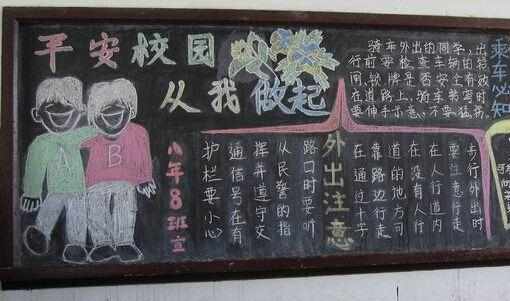 平安校园
从我做起
A
B
八年8班宣
骑车外出的同学,出
行前要检查车辆的
闸,锁牌是否安全有效
在道路上,骑车转弯时
要伸手示意,不要猛拐,
乘车必知
外出注意
步行外出时
要注意行走
在人行道内
在没有人行
道的地方可
靠路边行走
在通过十字
路口时要听
从民警的指
挥并遵守交
通信号在有
护栏要小心